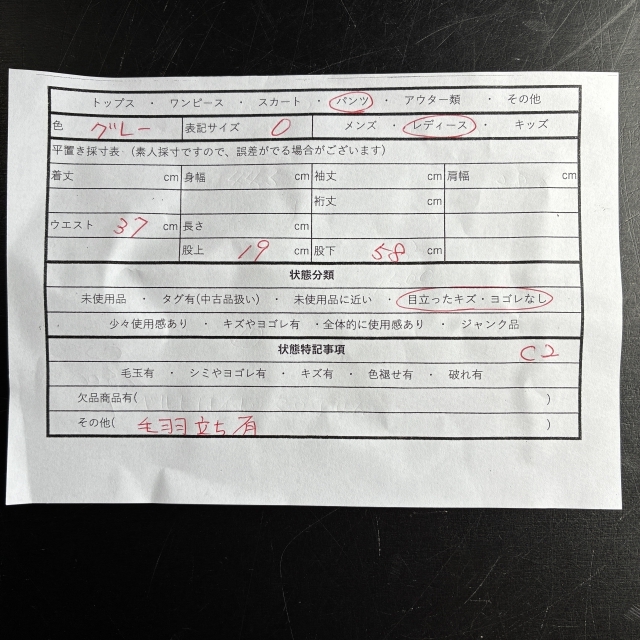 トップス ・ ワンピース ・ スカート ・ パンツ ・ アウター類 ・ その他
色 グレー 表記サイズ 0 メンズ ・ レディース ・ キッズ
平置き採寸表 (素人採寸ですので、誤差がでる場合がございます)
着丈 cm 身幅 cm 袖丈 cm 肩幅 cm
裄丈 cm
ウエスト 37 cm 長さ
股上 19 cm 股下 58 cm
状態分類
未使用品 ・ タグ有(中古品扱い) ・ 未使用品に近い ・ 目立ったキズ・ヨゴレなし
少々使用感あり ・ キズやヨゴレ有 ・全体的に使用感あり ・ ジャンク品
状態特記事項 C2
毛玉有 ・ シミやヨゴレ有 ・ キズ有 ・ 色褪せ有 ・ 破れ有
欠品商品有( )
その他( 毛羽立ち有 )